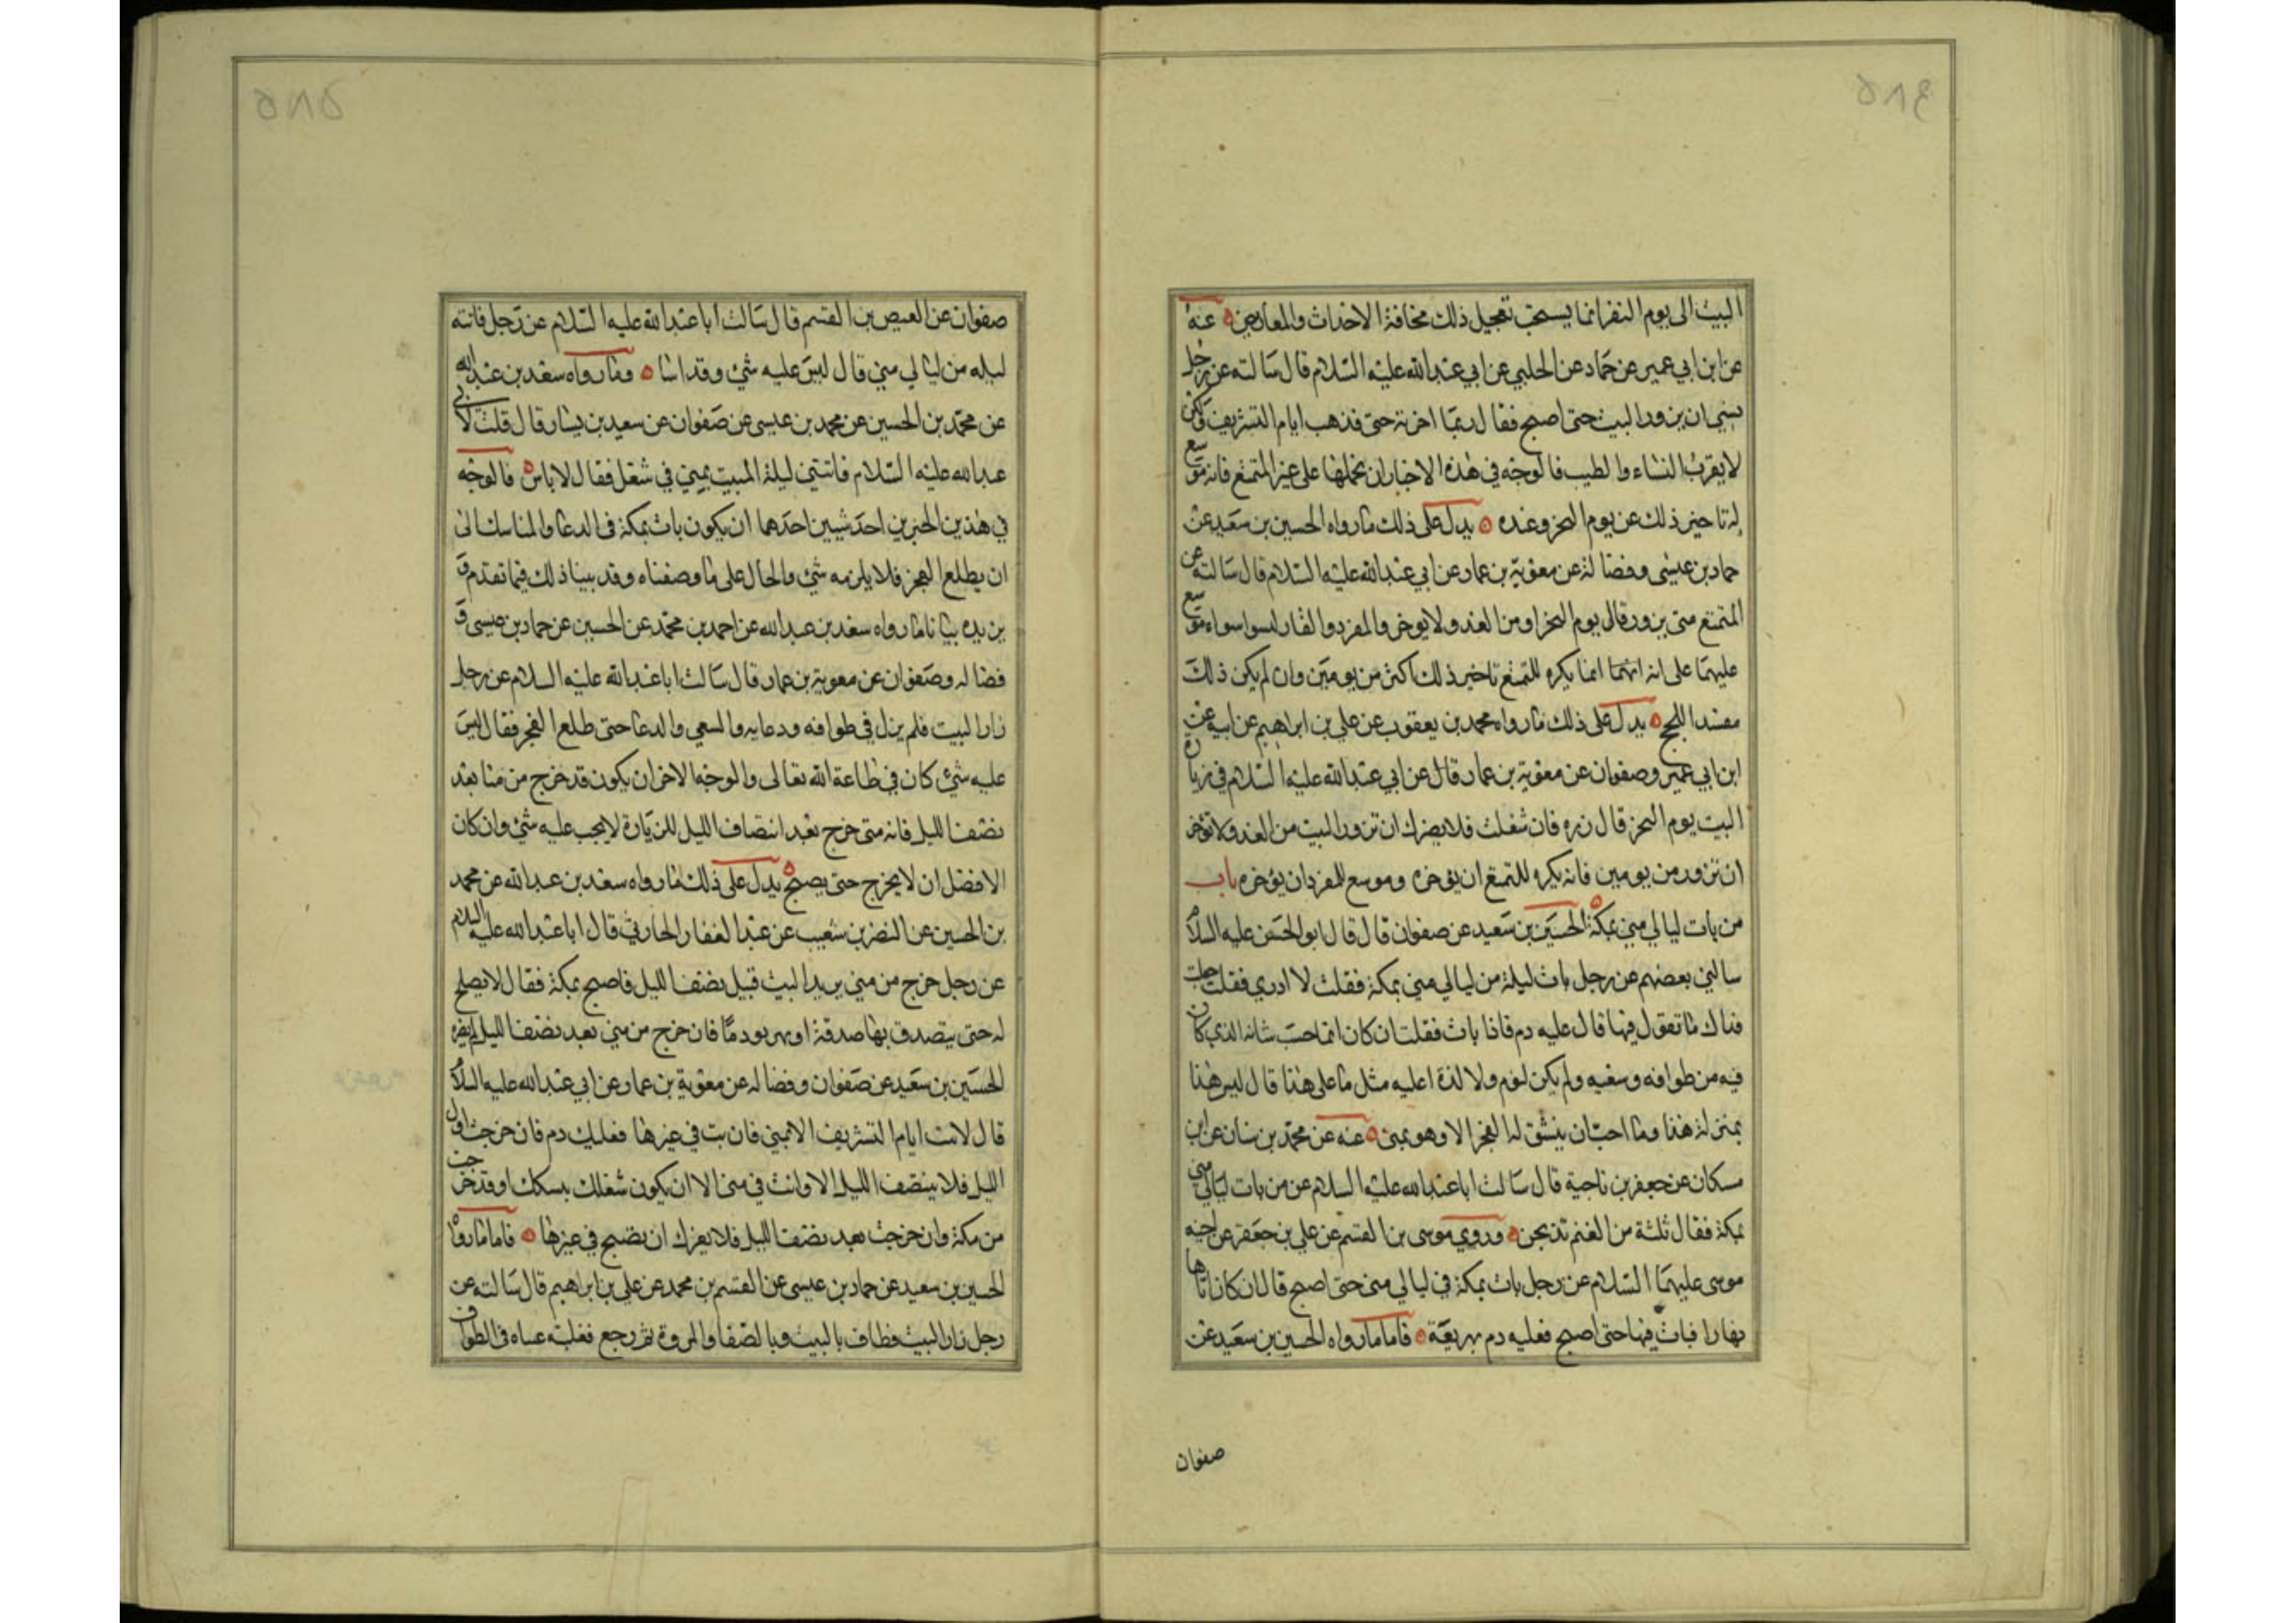 ٥٨٤
البيت الى يوم النفر انما يستحب تعجيل ذلك مخافة الاحداث والمعاريض عنه
عن ابن ابي عمير عن حماد عن الحلبي عن ابي عبدالله عليه السلام قال سالته عن رجل
نسي ان يزور البيت حتى اصبح فقال ربما اخرته حتى تذهب ايام التشريق ولكن
لا يقرب النساء والطيب فالوجه في هذه الاخبار ان نحملها على غير المتمتع فانه موسع
له تاخير ذلك عن يوم النحر وغده يدل على ذلك ما رواه الحسين بن سعيد عن
حماد بن عيسى وفضالة عن معوية بن عمار عن ابي عبدالله عليه السلام قال سالته عن
المتمتع متى يزور قال يوم النحر او من الغد ولا يوخر والمفرد والقارن ليسوا سواء موسع
عليهما على انه انما يكره للمتمتع تاخير ذلك اكثر من يومين وان لم يكن ذلك
مفسدا للحج يدل على ذلك ما رواه محمد بن يعقوب عن علي بن ابراهيم عن ابيه عن
ابن ابي عمير وصفوان عن معوية بن عمار قال عن ابي عبدالله عليه السلام في زيارة
البيت يوم النحر قال زره فان شغلت فلا يضرك ان تزور البيت من الغد ولا تؤخر
ان تزور من يومين فانه يكره للمتمتع ان يؤخره وموسع للمفرد ان يؤخره باب
من بات ليالي منى بمكة الحسين بن سعيد عن صفوان قال قال ابو الحسن عليه السلام
سالني بعضهم عن رجل بات ليلة من ليالي منى بمكة فقلت لا ادري فقلت جعلت
فداك ما تقول فيها قال عليه دم فاذا بات فقلت ان كان انما حبسه شانه الذي كان
فيه من طوافه وسعيه ولم يكن لنوم ولا لذة اعليه مثل ما على هذا قال ليس هذا
بمنزلة هذا وما احب ان ينشق له الفجر الا وهو بمنى عنه عن محمد بن سنان عن ابن
مسكان عن جعفر بن ناجية قال سالت ابا عبدالله عليه السلام عن من بات ليالي منى
بمكة فقال ثلثة من الغنم تذبحن وروي موسى بن القسم عن علي بن جعفر عن اخيه
موسى عليهما السلام عن رجل بات بمكة في ليالي منى حتى اصبح قال ان كان اتاها
نهارا فبات فيها حتى اصبح فعليه دم يهريقه فاما ما رواه الحسين بن سعيد عن
صفوان
٥٨٥
صفوان عن العيص بن القسم قال سالت ابا عبدالله عليه السلام عن رجل فاتته
ليله من ليالي منى قال ليس عليه شئ وقد اساء وما رواه سعد بن عبدالله
عن محمد بن الحسين عن محمد بن عيسى عن صفوان عن سعيد بن يسار قال قلت لابي
عبدالله عليه السلام فاتتني ليلة المبيت بمنى في شغل فقال لا باس فالوجه
في هذين الخبرين احد شيئين احدهما ان يكون بات بمكة في الدعا والمناسك الى
ان يطلع الفجر فلا يلزمه شئ والحال على ما وصفناه وقد بينا ذلك فيما تقدم و
يزيده بيانا ما رواه سعد بن عبدالله عن احمد بن محمد عن الحسين عن حماد بن عيسى و
فضاله وصفوان عن معوية بن عمار قال سالت ابا عبدالله عليه السلام عن رجل
زار البيت فلم يزل في طوافه ودعايه والسعي والدعا حتى طلع الفجر فقال ليس
عليه شئ كان في طاعة الله تعالى والوجه الاخر ان يكون قد خرج من منا بعد
نصف الليل فانه متى خرج بعد انتصاف الليل للزيارة لا يجب عليه شئ وان كان
الافضل ان لا يخرج حتى يصبح يدل على ذلك ما رواه سعد بن عبدالله عن محمد
بن الحسين عن النضر بن شعيب عن عبد الغفار الحارثي قال ابا عبدالله عليه السلام
عن رجل خرج من منى يريد البيت قبيل نصف الليل فاصبح بمكة فقال لا يصلح
له حتى يتصدق بها صدقة او يهريق دما فان خرج من منى بعد نصف الليل لم يضره
الحسين بن سعيد عن صفوان وفضاله عن معوية بن عمار عن ابي عبدالله عليه السلام
قال لا تبت ايام التشريق الا بمنى فان بت في غيرها فعليك دم فان خرجت اول
الليل فلا ينتصف الليل الا وانت في منى الا ان يكون شغلك بنسكك او قد خرجت
من مكة وان خرجت بعد نصف الليل فلا يضرك ان تصبح في غيرها فاما ما رواه
الحسين بن سعيد عن حماد بن عيسى عن القسم بن محمد عن علي بن ابراهيم قال سالته عن
رجل زار البيت فطاف بالبيت وبالصفا والمروة ثم رجع فغلبته عيناه في الطواف